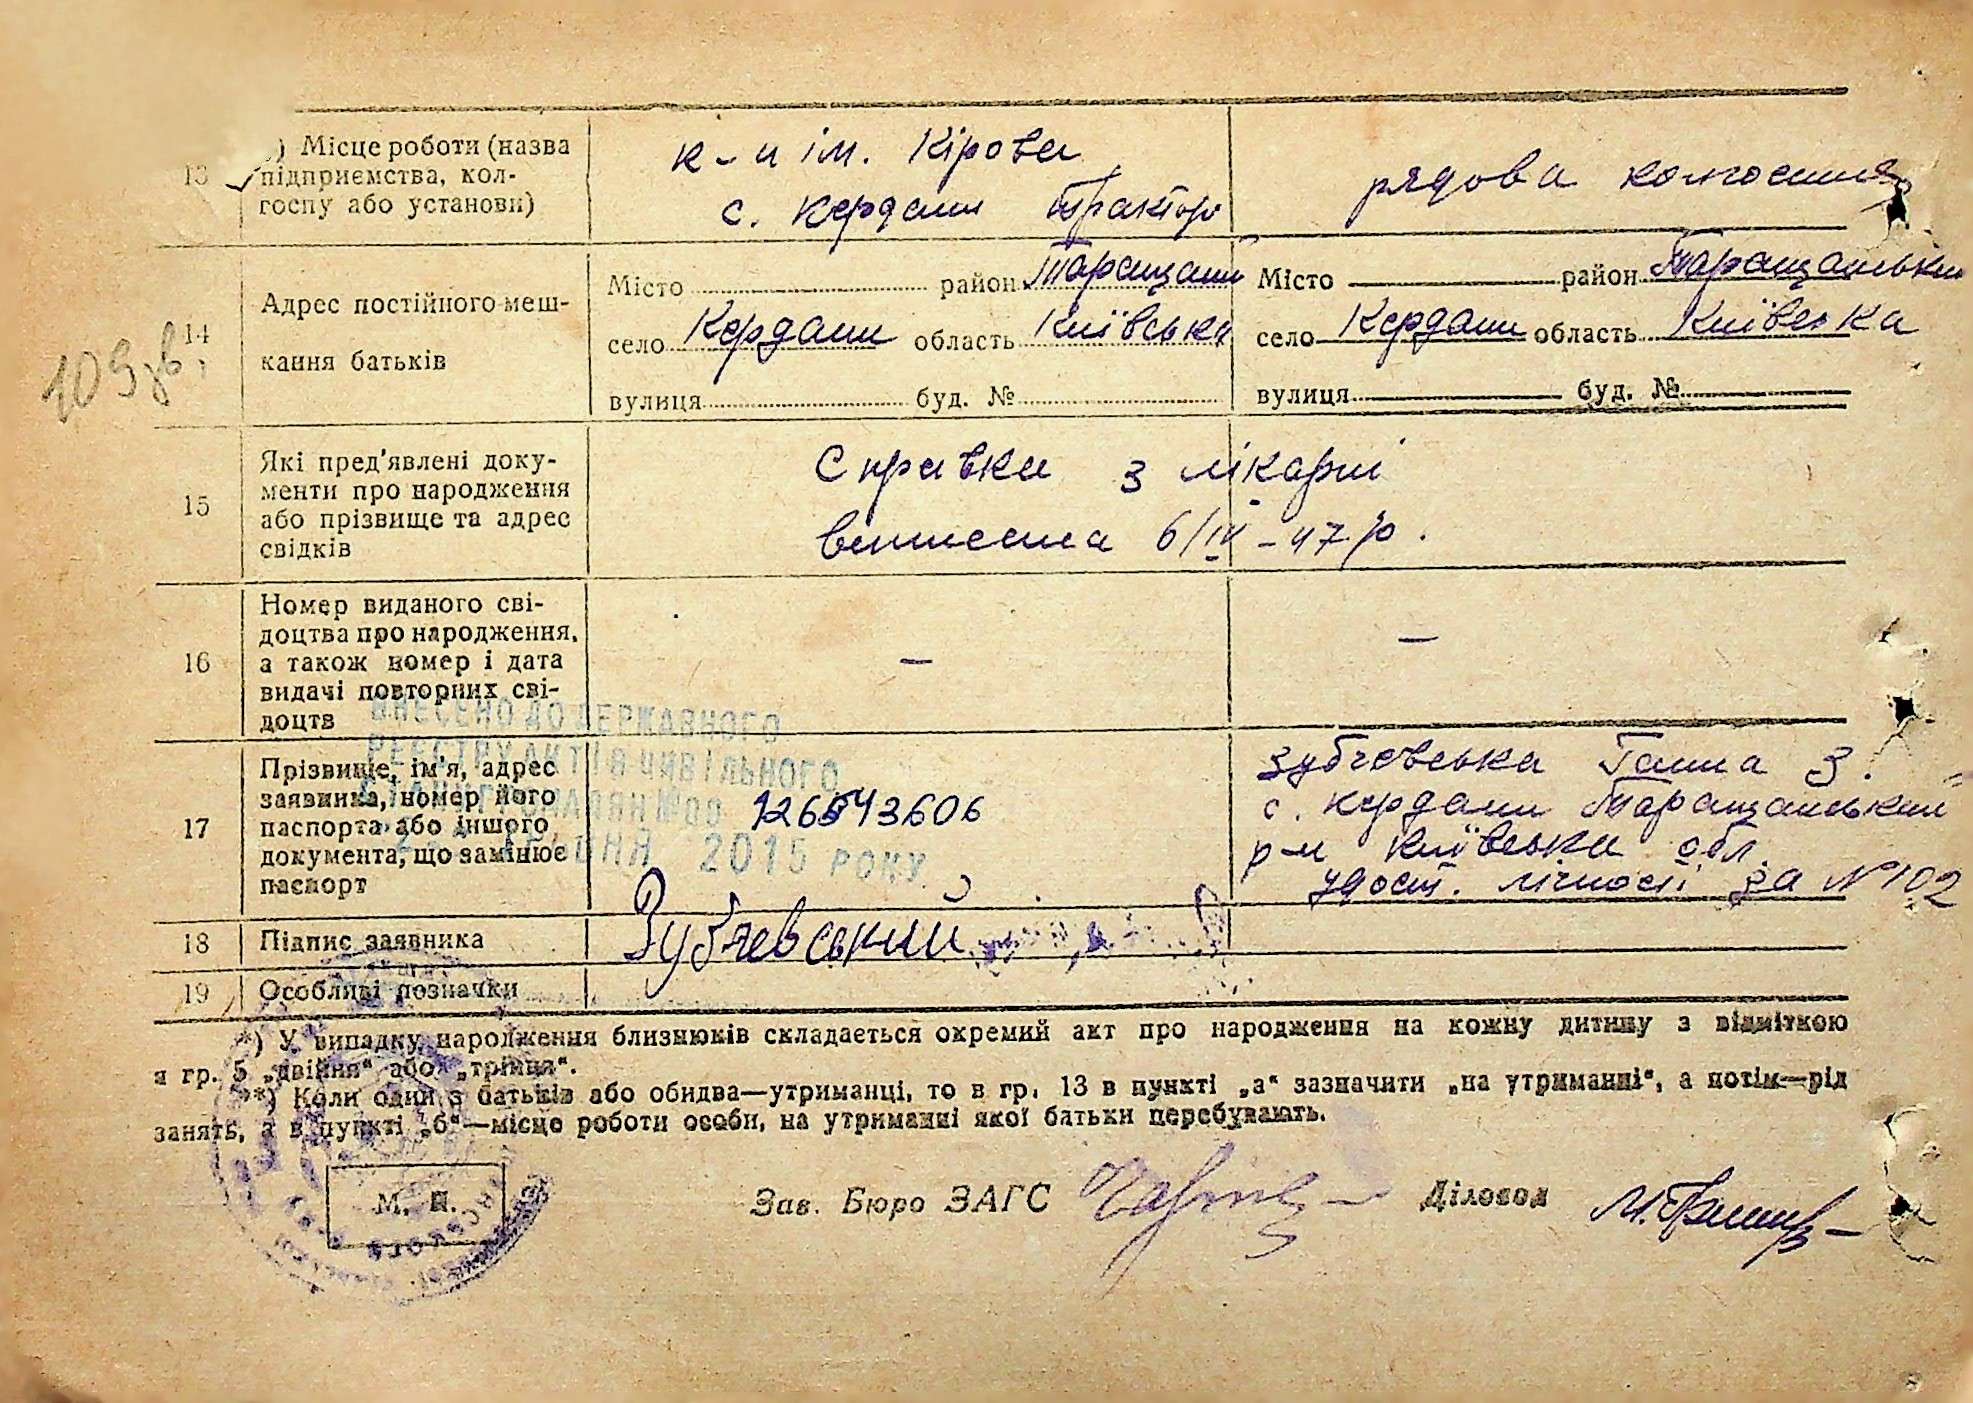 ) Місце роботи (назва
13 підприємства, кол-
госпу або установи)
к-п ім. Кірова
с. Кердани Трактор
рядова колгоспниця
14 Адрес постійного меш-
кання батьків
Місто район Таращан
село Кердани область Київська
вулиця буд. №
Місто район Таращанський
село Кердани область Київська
вулиця буд. №
109
15 Які пред'явлені доку-
менти про народження
або прізвище та адрес
свідків
Справка з лікарні
виписана 6/IV-47 р.
16 Номер виданого сві-
доцтва про народження,
а також номер і дата
видачі повторних сві-
доцтв
—
—
ВНЕСЕНО ДО ДЕРЖАВНОГО
РЕЄСТРУ АКТІВ ЦИВІЛЬНОГО
СТАНУ ГРОМАДЯН №00
2015 РОКУ
17 Прізвище, ім'я, адрес
заявника, номер його
паспорта або іншого
документа, що замінює
паспорт
Зубчевська Ганна З.
с. Кердани Таращанський
р-н Київська обл.
удост. лічності за №102
18 Підпис заявника
Зубчевський
19 Особливі позначки
*) У випадку народження близнюків складається окремий акт про народження на кожну дитину з відміткою
в гр. 5 „двійня“ або „трійня“.
**) Коли один з батьків або обидва—утриманці, то в гр. 13 в пункті „а“ зазначити „на утриманні“, а потім—рід
занять, а в пункті „б“—місце роботи особи, на утриманні якої батьки перебувають.
М. П.
Зав. Бюро ЗАГС
Діловод